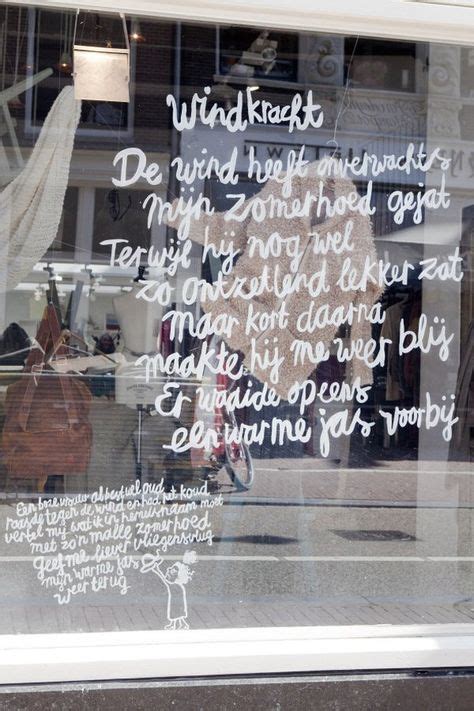 Windkracht
De wind heeft onverwachts
mijn zomerhoed gejat
Terwijl hij nog wel
zo ontzettend lekker zat
maar kort daarna
maakte hij me weer blij
Er waaide opeens
een warme jas voorbij
Een boze vrouw al best wel oud
raasde tegen de wind en had het koud
vertel mij wat ik in hemelsnaam moet
met zo'n malle zomerhoed
geef me liever vliegensvlug
mijn warme jas
weer terug